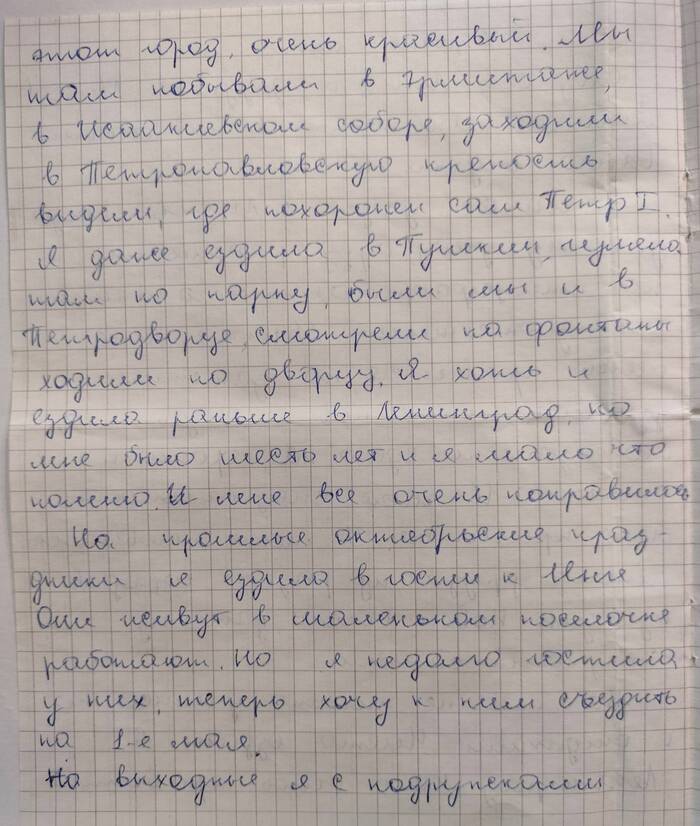 этот город, очень красивый. Мы
там побывали в Эрмитаже,
в Исаакиевском соборе, заходили
в Петропавловскую крепость
видели, где похоронен сам Петр I.
Я даже ездила в Пушкин, гуляла
там по парку, были мы и в
Петродворце, смотрели на фонтаны
ходили по дворцу. Я хоть и
ездила раньше в Ленинград, но
мне было шесть лет и я мало что
помню. И мне все очень понравилось
На прошлые октябрьские праз-
дники я ездила в гости к Инне
Они живут в маленьком поселочке
работают. Но я недолго гостила
у них, теперь хочу к ним съездить
на 1-е мая.
На выходные я с подружками